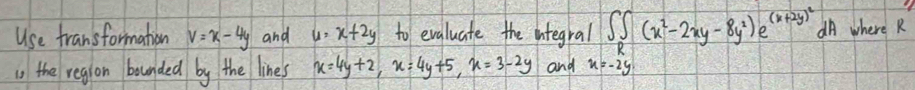 Use transformation v = x - 4y and u = x + 2y to evaluate the integral ∬_R (x² - 2xy - 8y²) e^{(x+2y)²} dA where R
is the region bounded by the lines x = 4y + 2, x = 4y + 5, x = 3 - 2y and x = -2y